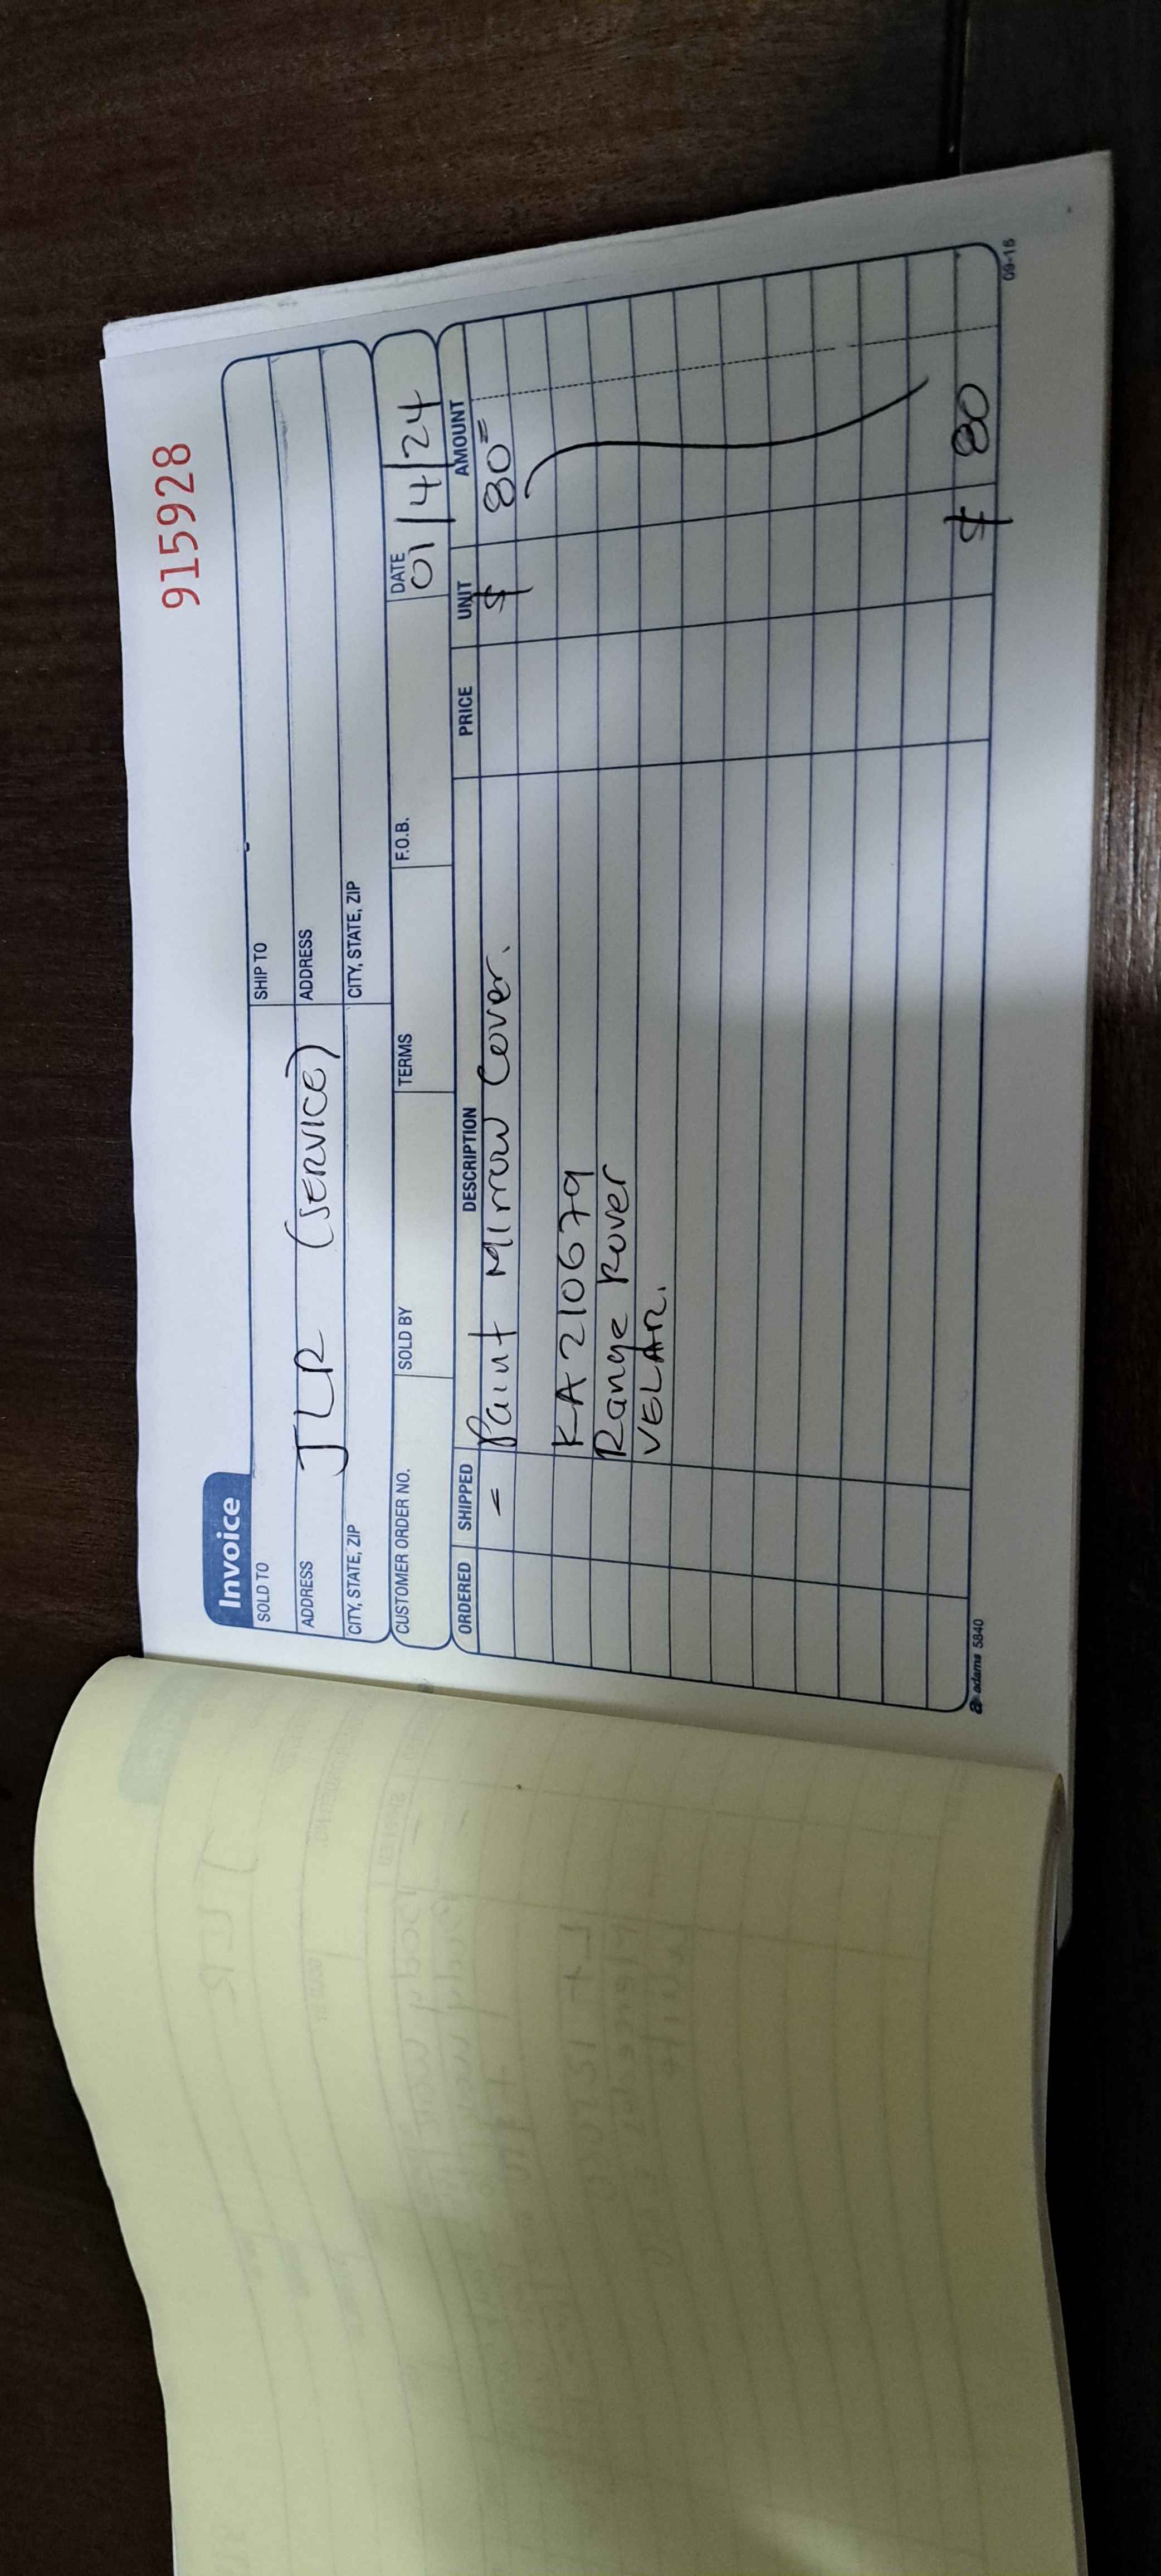 915928
Invoice
SOLD TO
SHIP TO
ADDRESS
ADDRESS
JLR (SERVICE)
CITY, STATE, ZIP
CITY, STATE, ZIP
CUSTOMER ORDER NO. SOLD BY TERMS F.O.B. DATE
01/4/24
ORDERED SHIPPED DESCRIPTION PRICE UNIT AMOUNT
= Paint Mirror Cover. $ 80=
KA210679
Range Rover
VELAR.
$ 80
adams 5840
09-16